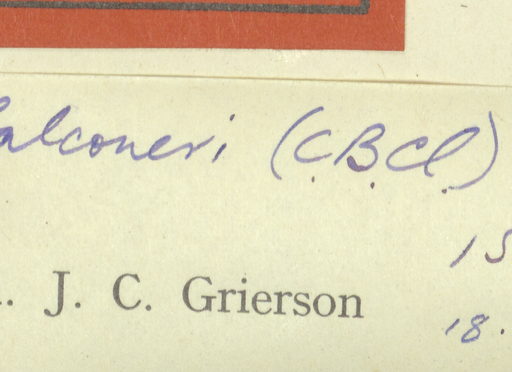 falconeri (C.B.Cl.)
15
. J. C. Grierson
18.